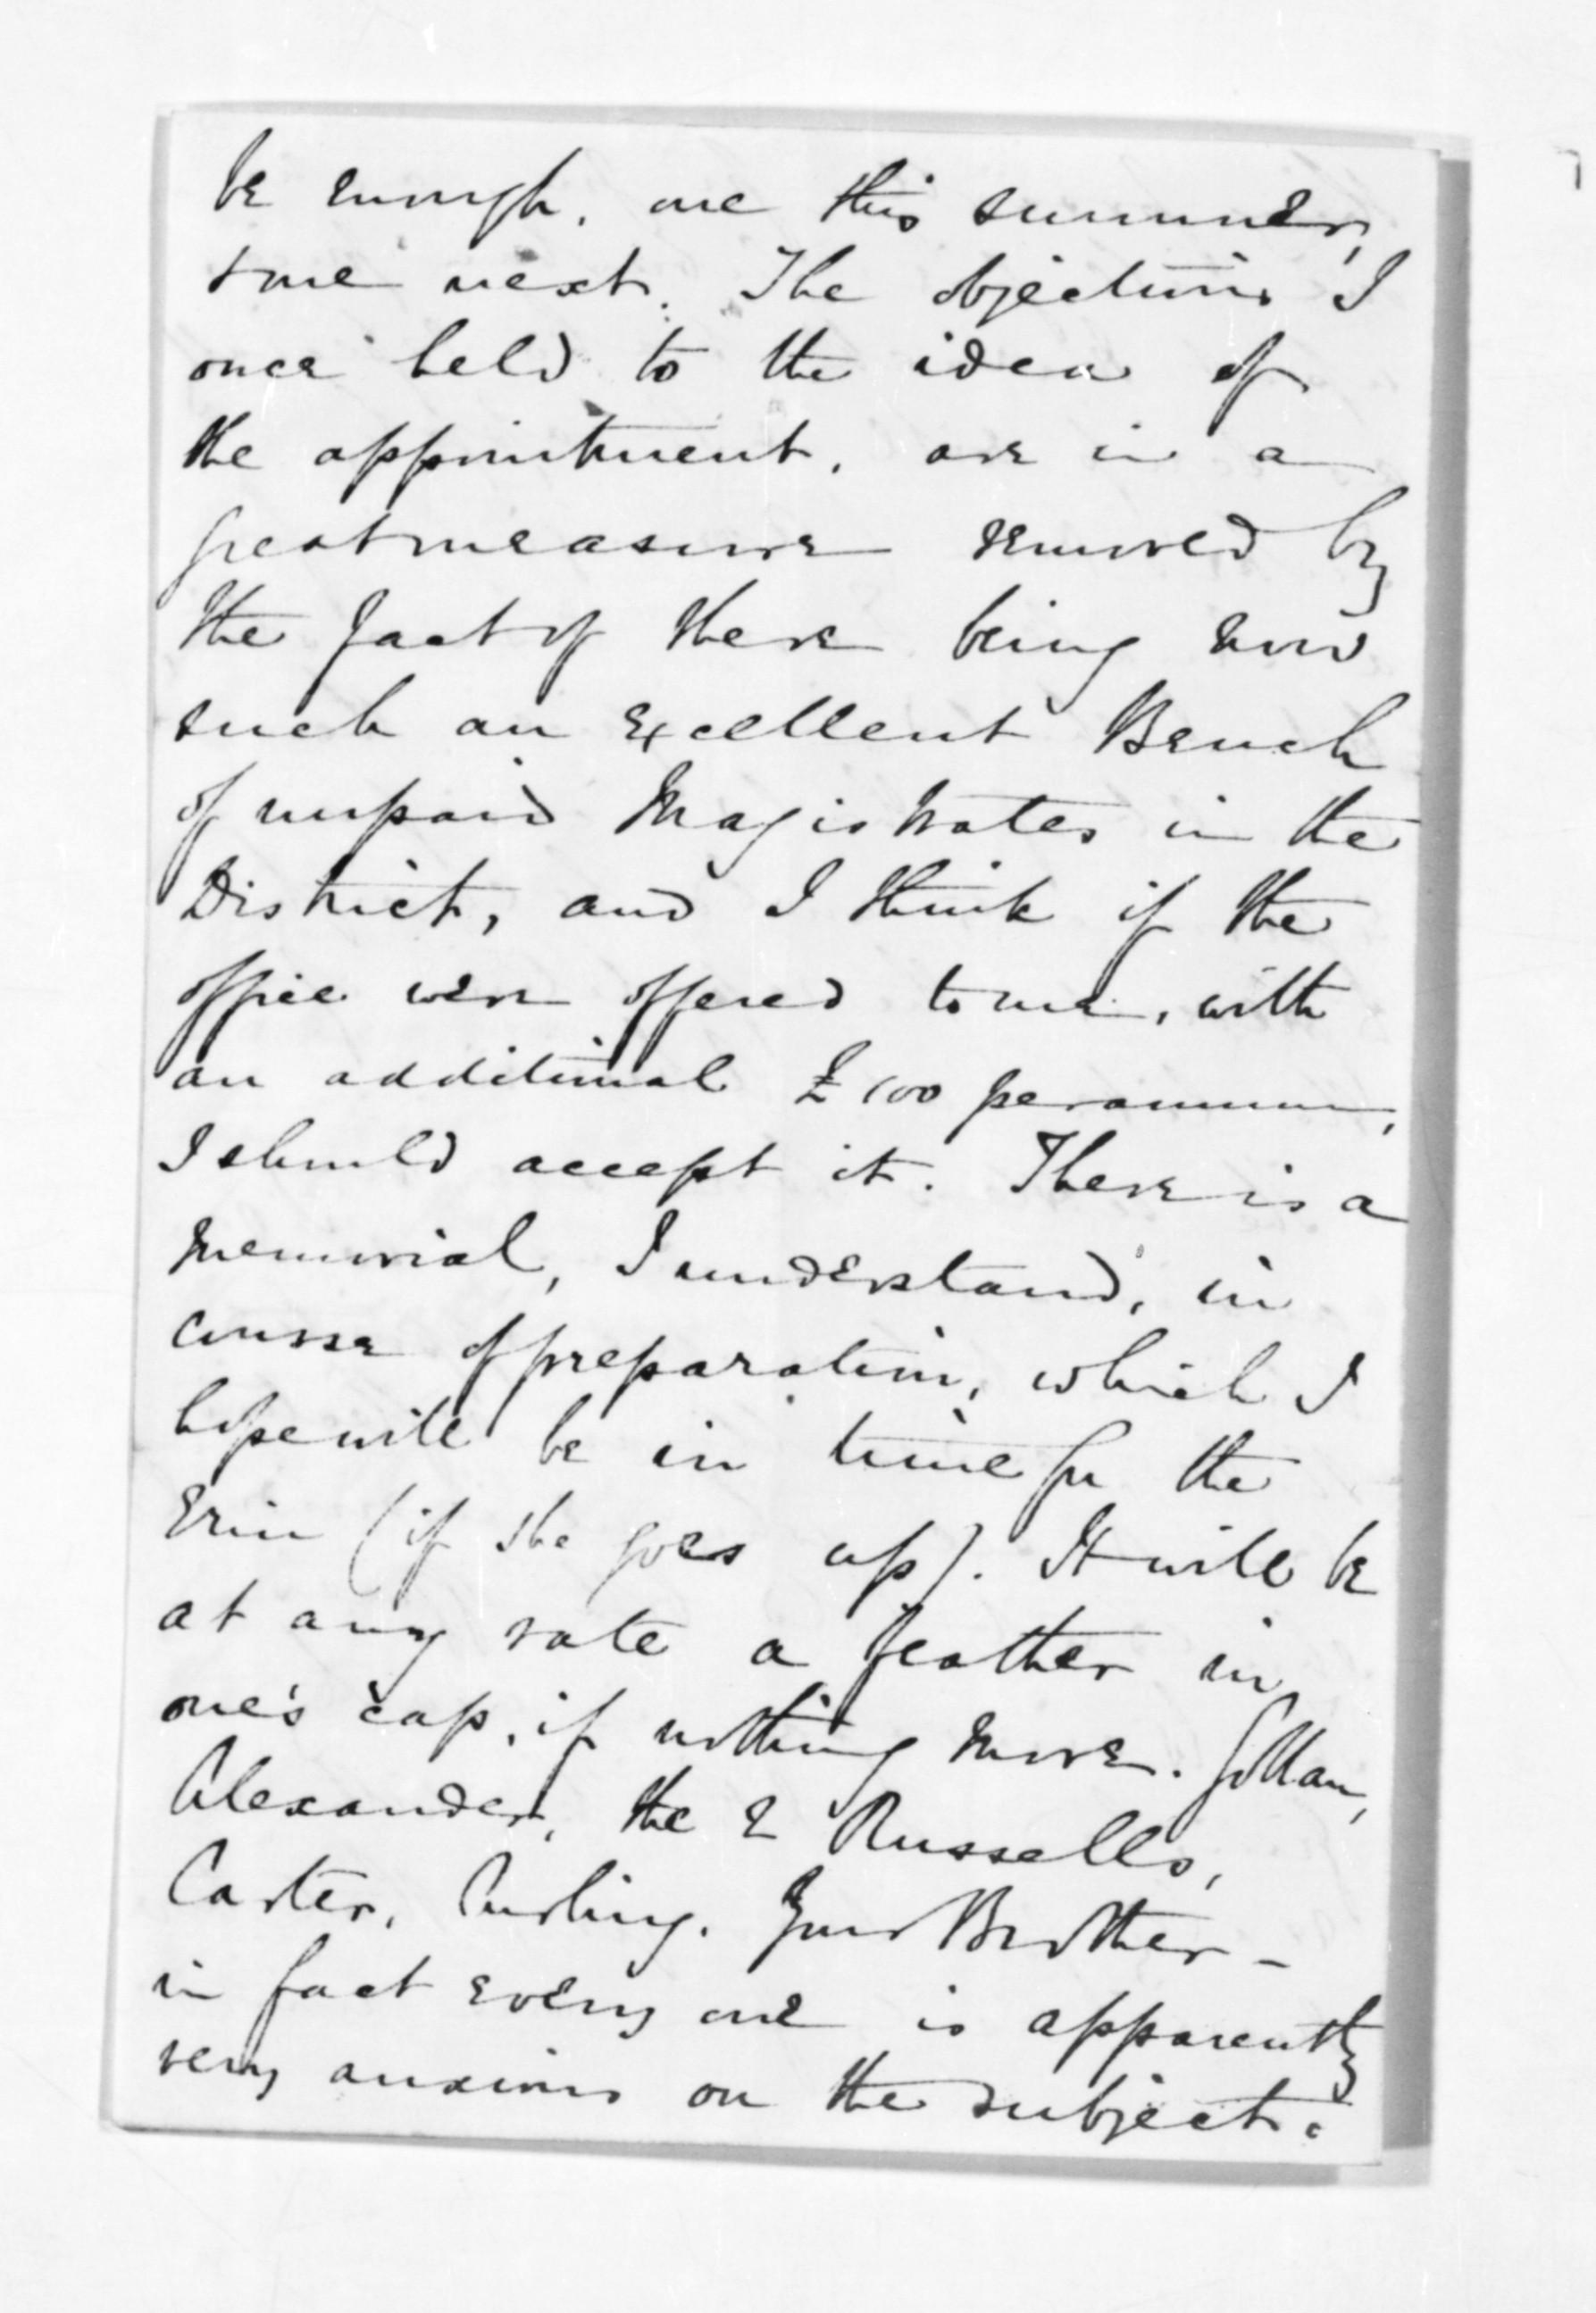 be enough, one this summer,
& one next. The objections I
once held to the idea of
the appointment, are in a
great measure removed by
the fact of there being now
such an excellent Bench
of unpaid Magistrates in the
District, and I think if the
office were offered to me, with
an additional £100 per annum,
I should accept it. There is a
memorial, I understand, in
course of preparation, which I
hope will be in time for the
Erin (if she goes up). It will be
at any rate a feather in
one's cap, if nothing more. Gollan,
Alexander, the 2 Russells,
Carter, Curling. Your Brother -
in fact every one is apparently
very anxious on the subject.